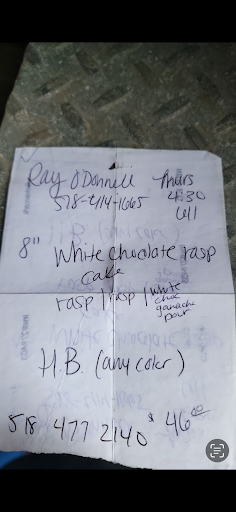 Ray O'Donnell Thurs
578-414-1665 4:30
8" White chocolate rasp
cake
rasp | rasp | white
choc
ganache
pour
H.B. (any color)
518 477 2140 $46.00